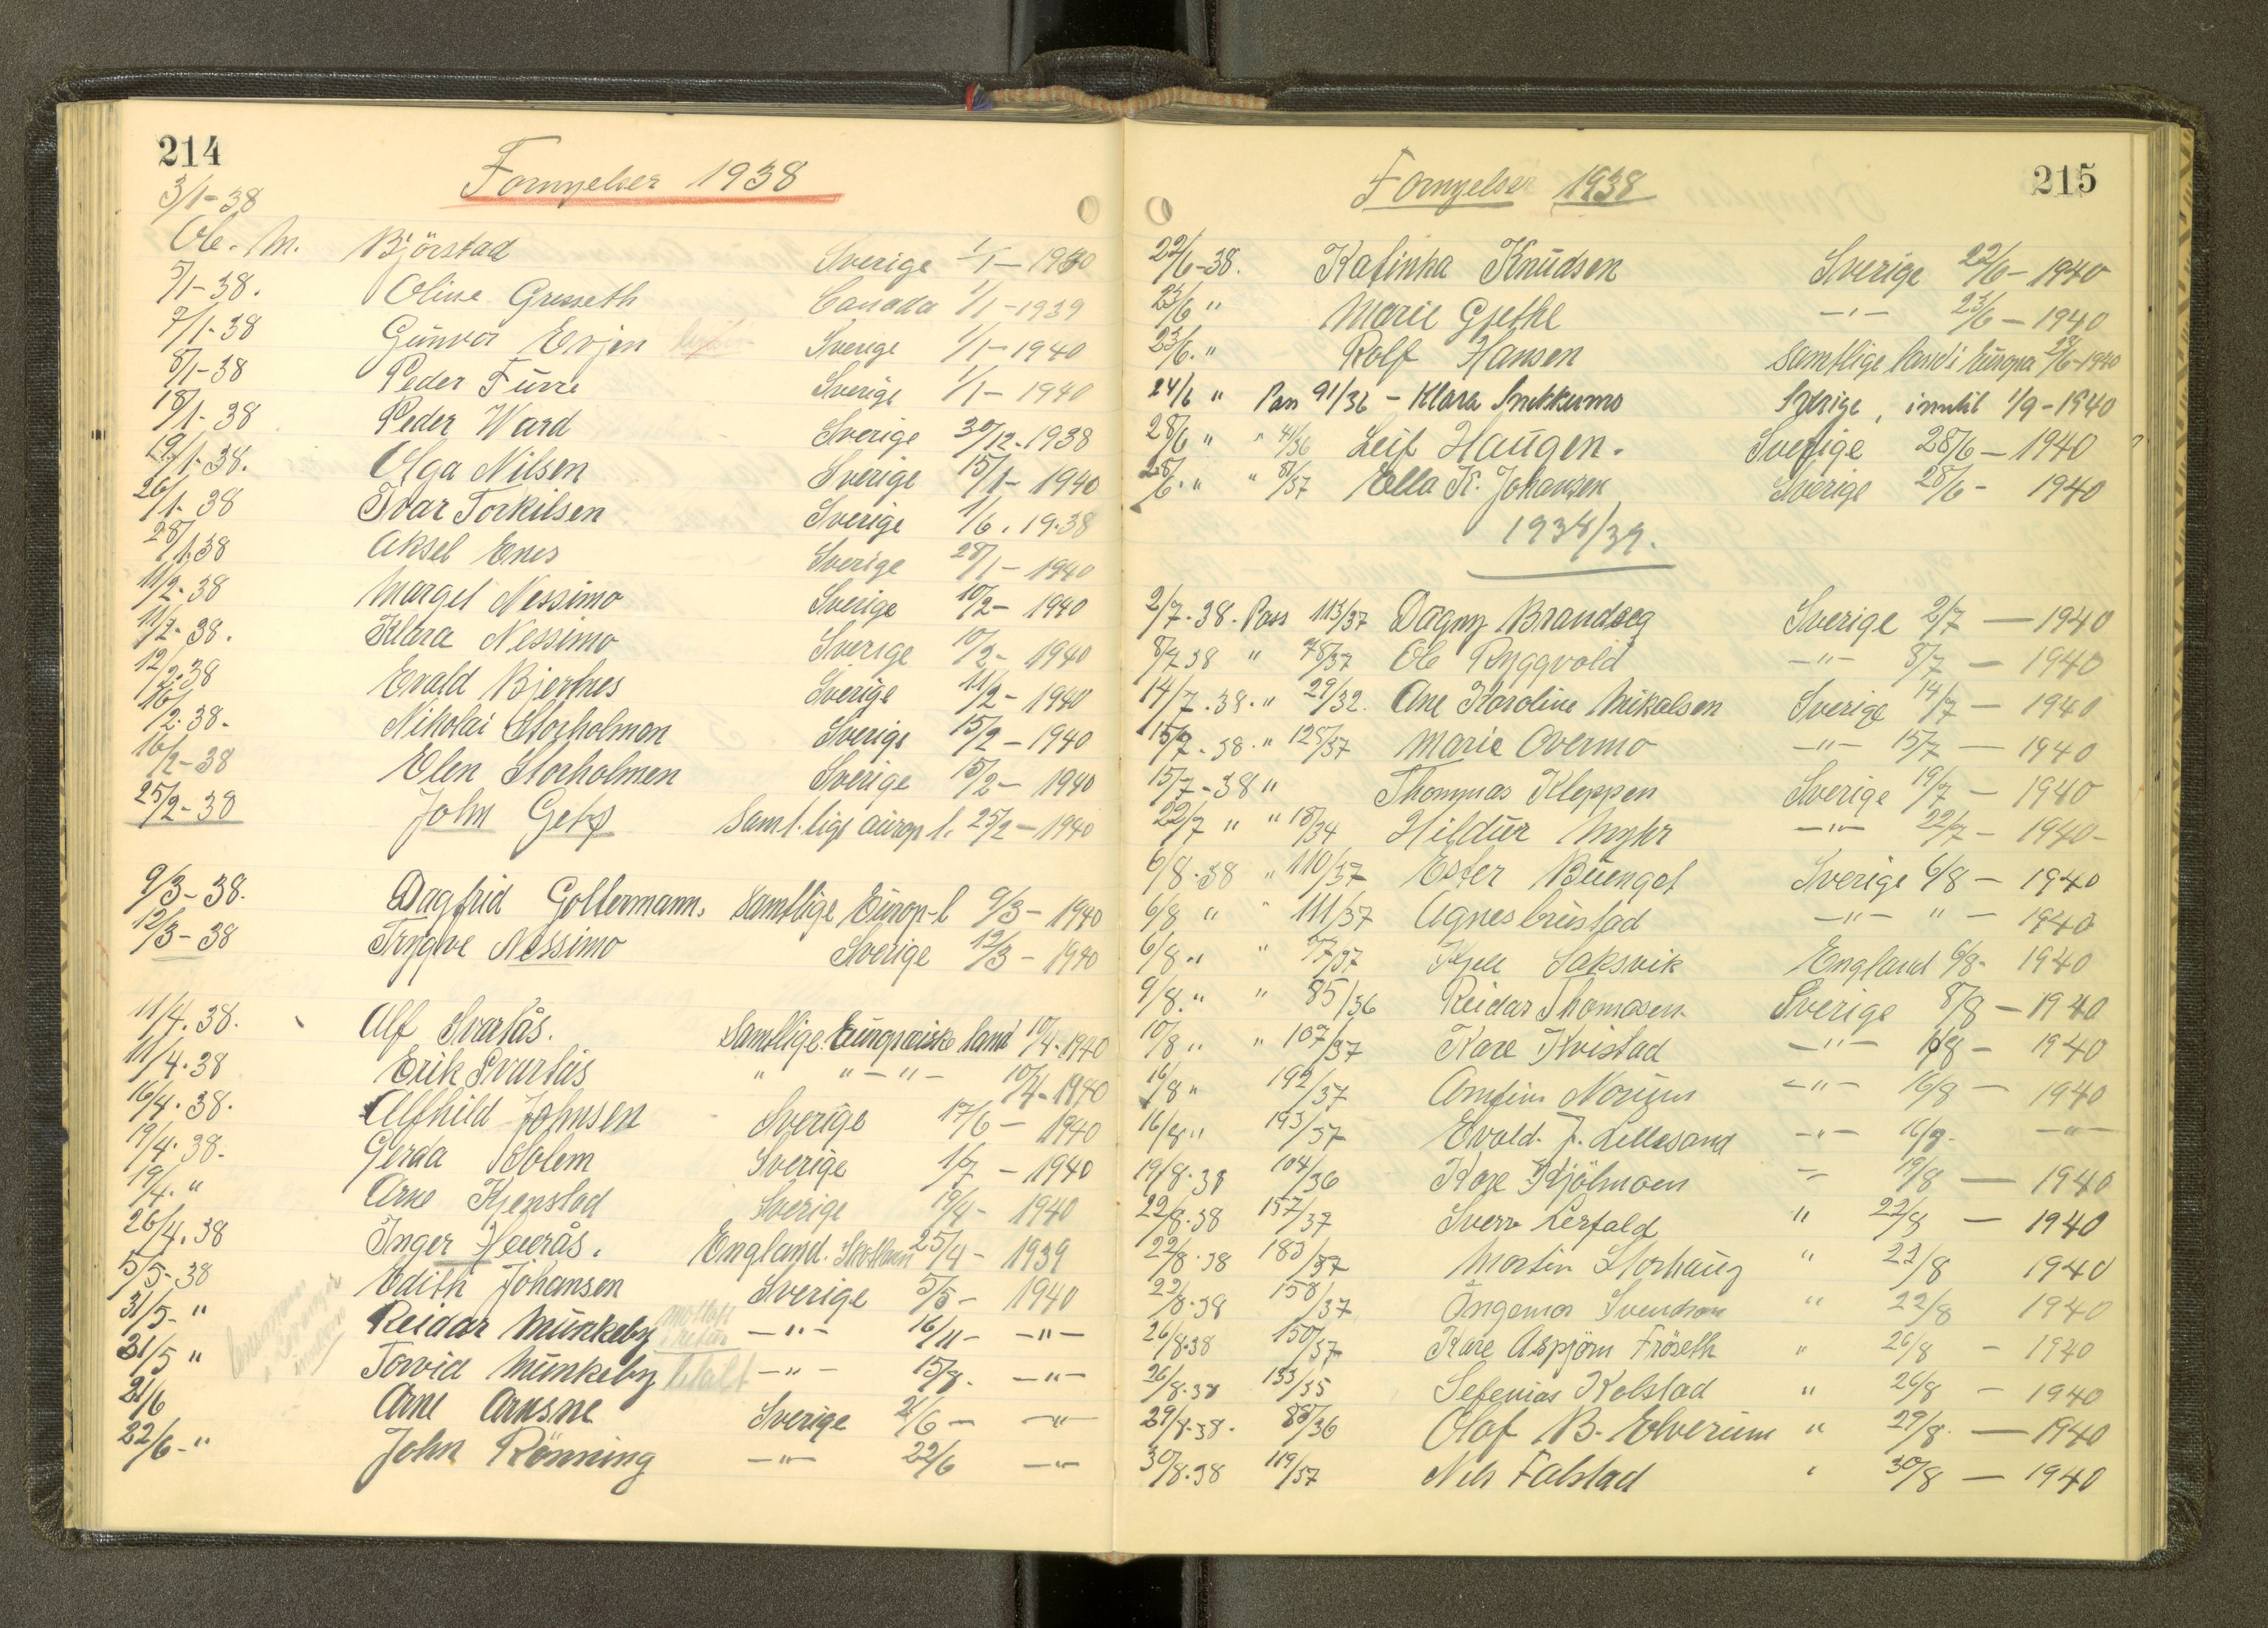 214
Fornyelser 1938
3/1-38
Ole. M. Bjørstad Sverige 1/1-1940
5/1-38. Oline Gresseth Canada 1/1-1939
7/1-38 Gunvor Evjen Sverige 1/1-1940
8/1-38 Peder Furre Sverige 1/1-1940
18/1-38 Peder Ward Sverige 30/12-1938
19/1-38. Olga Nilsen Sverige 15/1-1940
26/1-38 Ivar Torkilsen Sverige 1/6.1938
28/1-38 Aksel Enes Sverige 28/1-1940
11/2-38 Margel Nessimo Sverige 10/2-1940
11/2-38. Klara Nessimo Sverige 10/2-1940
12/2-38 Evald Bjertnes Sverige 11/2-1940
16/2-38. Nikolai Storholmen Sverige 15/2-1940
16/2-38 Elen Storholmen Sverige 15/2-1940
25/2-38 John Getz Saml.lige europ.l. 25/2-1940
9/3-38. Dagfrid Goltermann. Samtlige Europ-l 9/3-1940
12/3-38 Trygve Nessimo Sverige 12/3-1940
11/4.38. Alf Svartås. Samtlige Europæiske land 10/4-1940
11/4.38 Erik Svartås " "-"- 10/4-1940
16/4.38. Alfhild Johnsen Sverige 17/6-1940
19/4.38. Gerda Koblem Sverige 1/7-1940
19/4. " Arne Kjenstad Sverige 19/4-1940
26/4.38 Inger Heierås. England. 25/4-1939
5/5-38 Edith Johansen Sverige 5/5-1940
31/5-" Reidar Munkeby mottatt i retur -"- 16/11- -"-
31/5 " Torvid Munkeby betalt -"- 15/8. -"-
21/6 Arne Arnsne Sverige 21/6- -"-
22/6-" John Rönning -"- 22/6 -"-
215
Fornyelser 1938
22/6-38. Katinka Knudsen Sverige 22/6-1940
23/6 " Marie Gjethe -"- 23/6-1940
23/6. " Rolf Hansen Samtlige land i Europa 23/6-1940
24/6 " Pass 91/36 - Klara Snekkermo Sverige, inntil 1/9-1940
28/6 " " 41/36 Leif Haugen. Sverige 28/6-1940
28/6. " " 81/37 Ella K. Johansen Sverige 28/6-1940
1938/39.
2/7.38. Pass 113/37 Dagny Brandseg Sverige 2/7-1940
8/7 38 " 78/37 Ole Ryggvold -"- 8/7-1940
14/7.38. " 29/32. Ane Karoline Mikalsen Sverige 14/7-1940
15/7-38. " 125/37 Marie Overmo -"- 15/7-1940
15/7-38 " Thommas Kleppen Sverige 19/7-1940
22/7 " " 18/34 Hildur Myhr -"- 22/7-1940-
6/8.38 " 110/37 Ester Buengel Sverige 6/8-1940
6/8 " " 111/37 Agnes -"- "-1940
6/8 " " 77/37 Kjell Saksvik England 6/8-1940
9/8. " " 85/36 Reidar Thomasen Sverige 8/8-1940
10/8 " " 107/37 Kåre Kvistad -"- 10/8-1940
16/8 " 192/37 Arnfinn Norum -"- 16/8-1940
16/8 " 193/37 Evald. J. Lillesand -"- 16/8. -"-
19/8.38 104/36 Kåre Kjölmoen - 19/8-1940
22/8.38 157/37 Sverre Lerfald " 22/8-1940
22/8.38 183/37 Martin Storhaug " 22/8 1940
22/8.38 158/37 Ingemar Svendsen " 22/8 1940
26/8.38 150/37 Kåre Aspjörn Fröseth " 26/8-1940
26/8.38 133/35 Sefenias Kolstad " 26/8-1940
29/8.38. 88/36 Olaf B. Elverum " 29/8.-1940
30/8.38 119/37 Nils Falstad " 30/8-1940